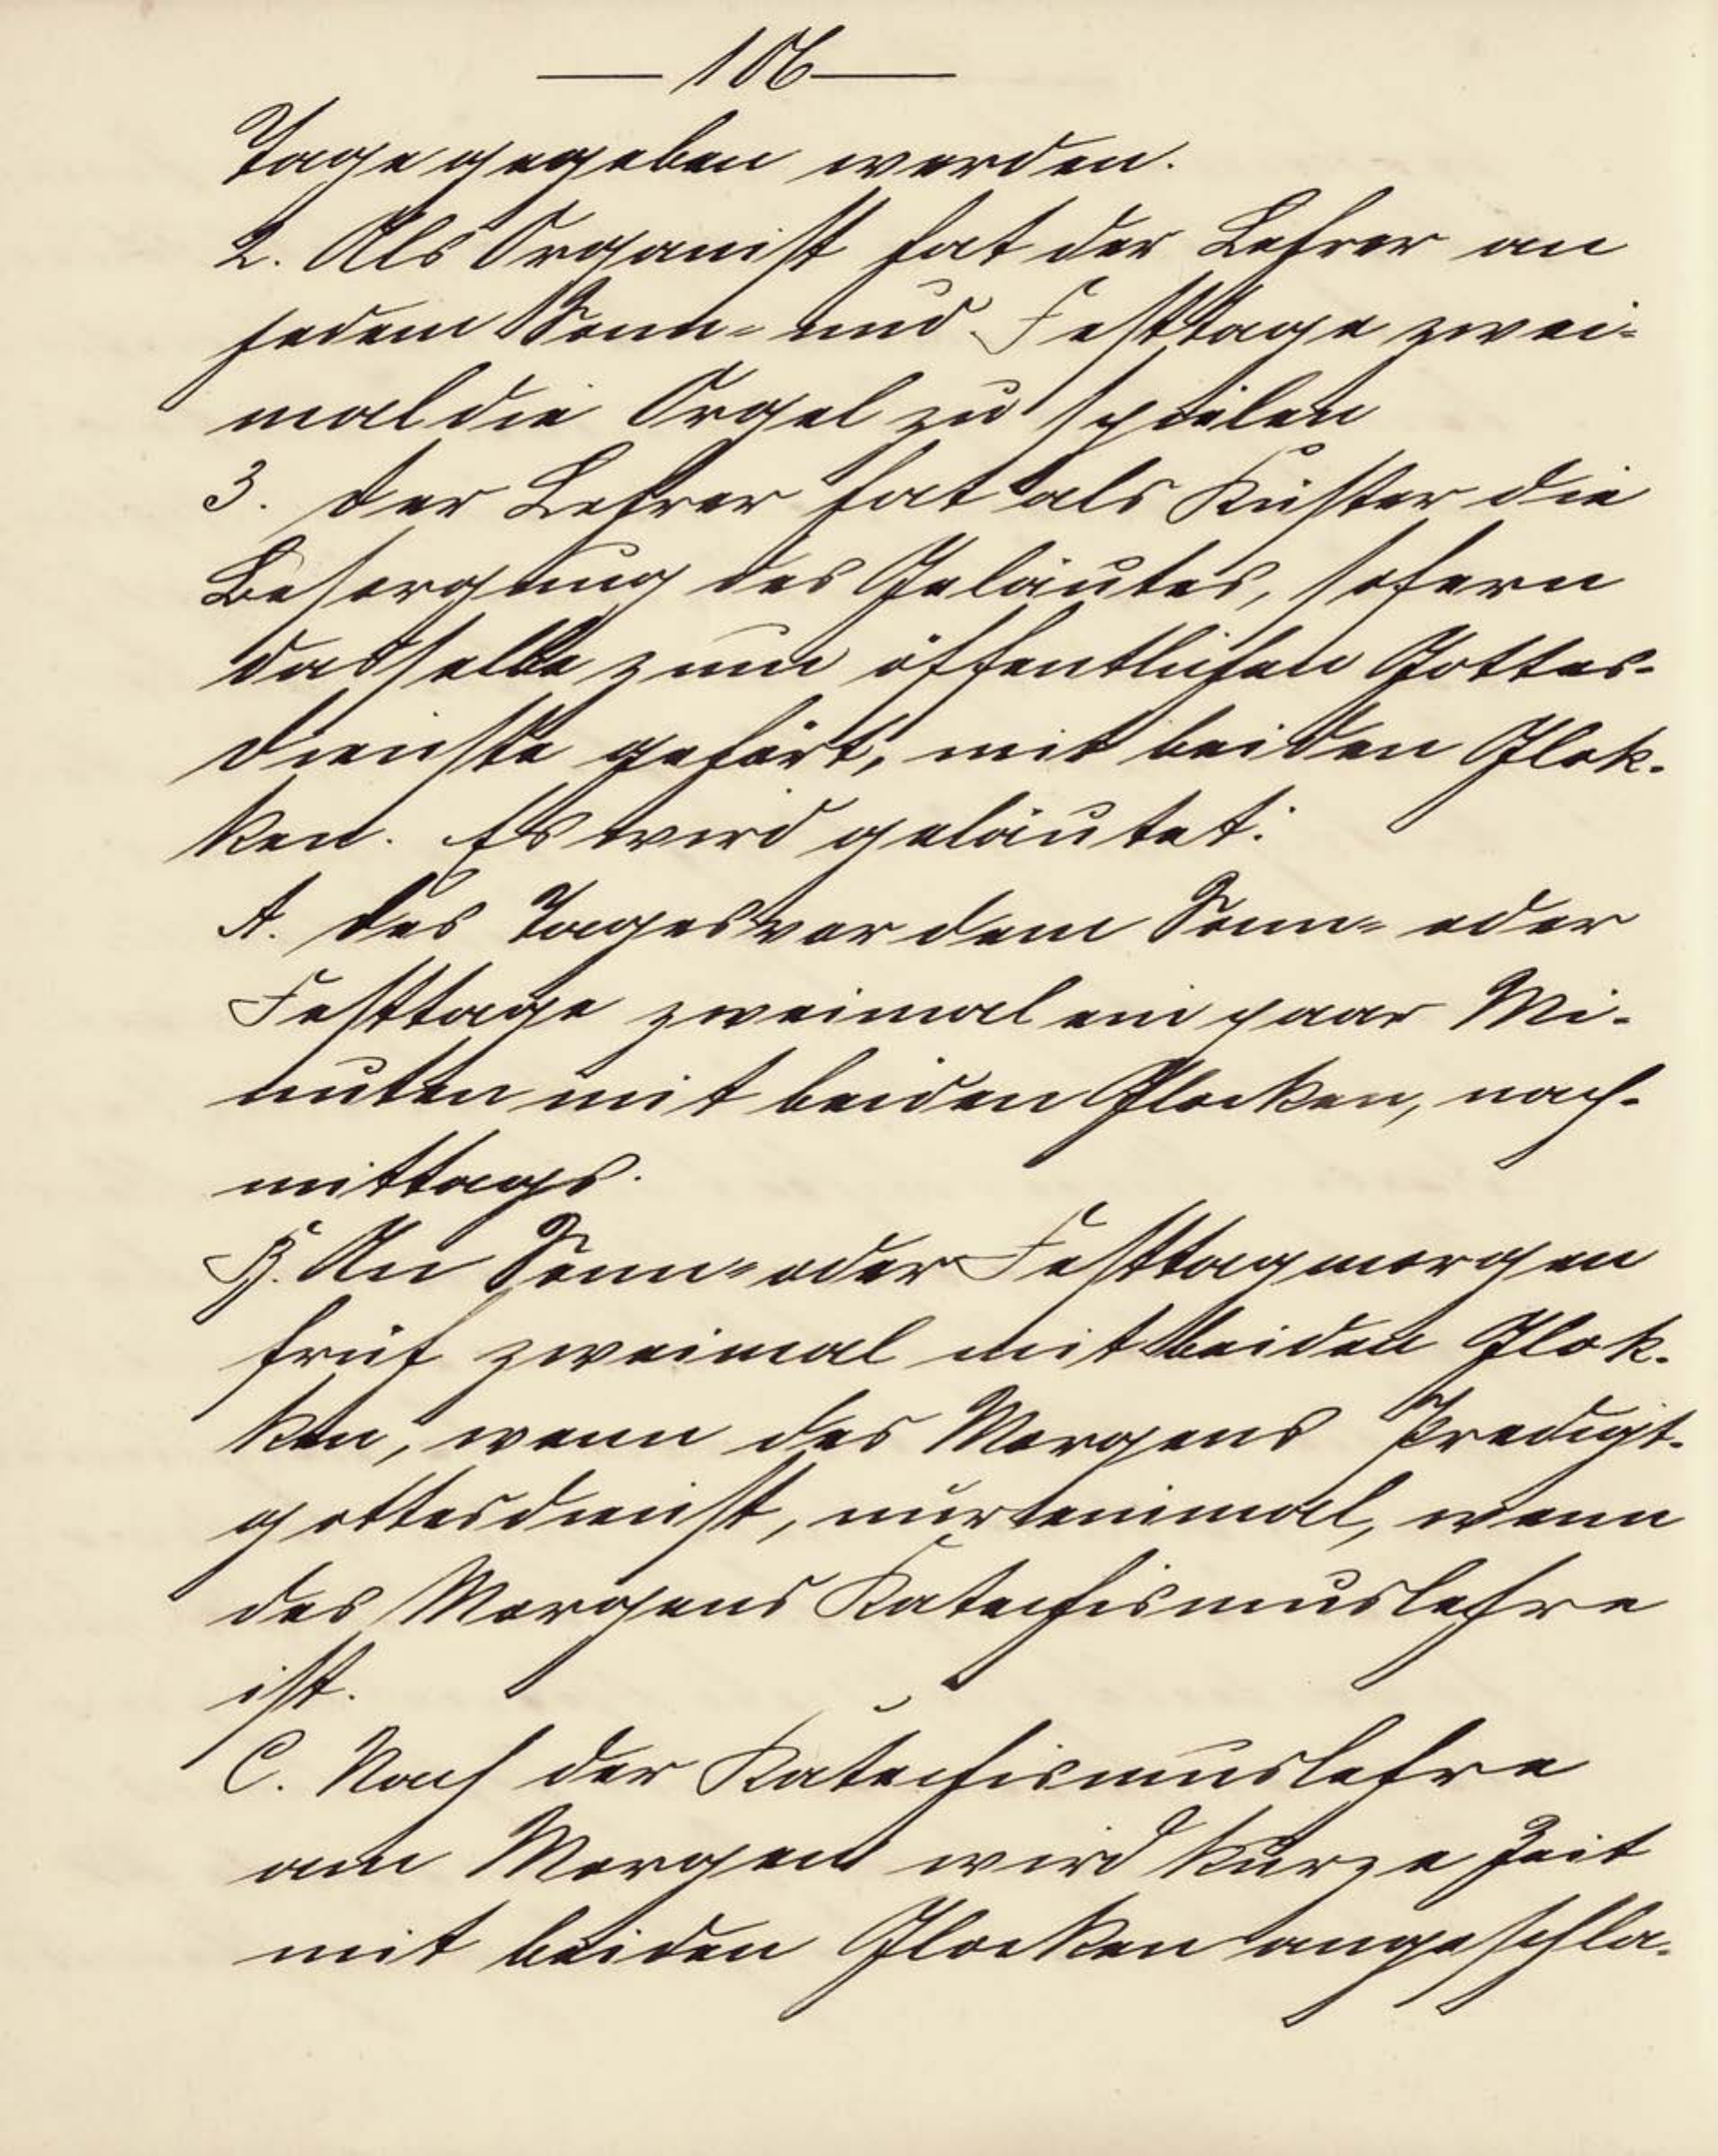 — 106 —
Tage gegeben werden.
2. Als Organist hat der Lehrer an
jedem Sonn- und Festtage zwei-
mal die Orgel zu spielen
3. Der Lehrer hat als Küster die
Besorgung des Geläutes, sofern
dasselbe zum öffentlichen Gottes-
dienste gehört, mit beiden Glok-
ken. Es wird geläutet:
A. Des Tages vor dem Sonn- oder
Festtage zweimal ein paar Mi-
nuten mit beiden Glocken, nach-
mittags.
B. An Sonn- oder Festtagmorgen
früh zweimal mit beiden Glok-
ken, wenn des Morgens Predigt-
gottesdienst, nur einmal, wenn
des Morgens Katechismuslehre
ist.
C. Nach der Katechismuslehre
am Morgen wird kurze Zeit
mit beiden Glocken angeschla-